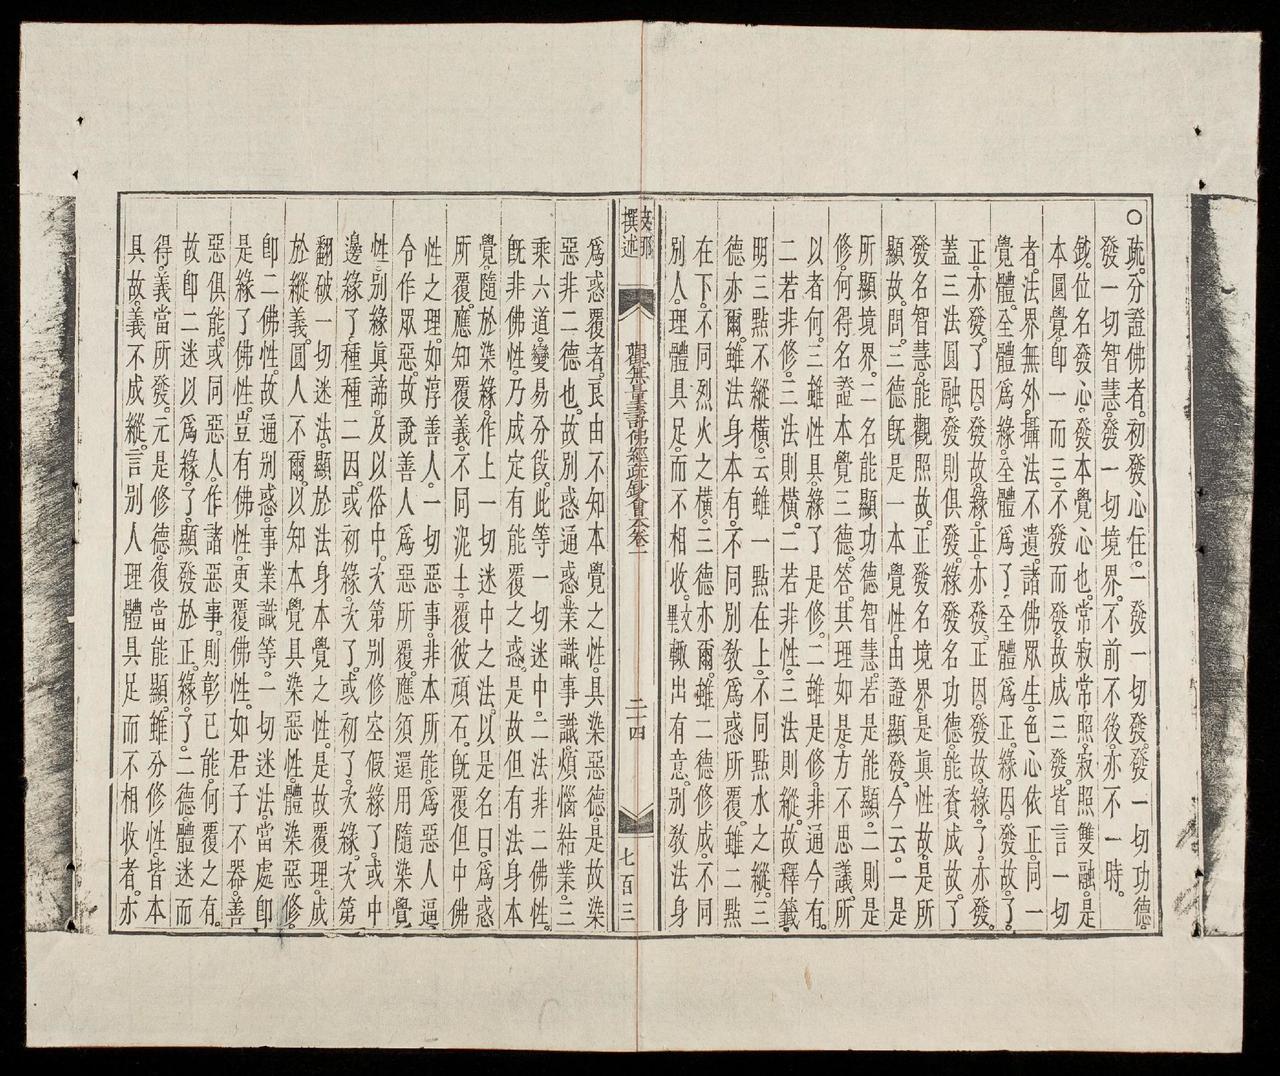 ○疏。分證佛者。初發心住。一發一切發。發一切功德。
發一切智慧。發一切境界。不前不後。亦不一時。
鈔。位名發心。發本覺心也。常寂常照。寂照雙融。是
本圓覺。卽一而三。不發而發。故成三發。皆言一切
者。法界無外。攝法不遺。諸佛眾生。色心依正。同一
覺體。全體爲緣。全體爲了。全體爲正。緣因。發故。了。
正。亦發。了因。發故。緣。正。亦發。正因。發故。緣。了。亦發。
蓋三法圓融。發則俱發。緣發名功德。能資成故。了
發名智慧。能觀照故。正發名境界。是眞性故。是所
顯故。問。三德旣是一本覺性。由證顯發。今云。一是
所顯境界。二名能顯功德智慧。若是能顯。二則是
修。何得名證本覺三德。答。其理如是。方不思議。所
以者何。三雖性具。緣了是修。二雖是修。非通今有。
二若非修。三法則橫。二若非性。三法則縱。故釋籤
明三點不縱橫。云雖一點在上。不同點水之縱。三
德亦爾。雖法身本有。不同別教爲惑所覆。雖二點
在下。不同烈火之橫。三德亦爾。雖二德修成。不同
別人。理體具足。而不相收。文畢。輙出有意。別教法身
支那撰述
觀無量壽佛經疏鈔會本卷一
二十四
七百三
爲惑覆者。良由不知本覺之性。具染惡德。是故染
惡非二德也。故別惑通惑。業識事識。煩惱結業。三
乘六道。變易分段。此等一切迷中。二法非二佛性。
旣非佛性。乃成定有能覆之惑。是故但有法身本
覺。隨於染緣。作上一切迷中之法。以是名曰。爲惑
所覆。應知覆義。不同泥土。覆彼頑石。旣覆但中佛
性之理。如淳善人。一切惡事。非本所能。爲惡人逼
令作眾惡。故說善人爲惡所覆。應須還用隨染覺
性。別緣眞諦。及以俗中。次第別修空假緣了。或中
邊緣了。種種二因。或初緣。次了。或初了。次緣。次第
翻破一切迷法。顯於法身本覺之性。是故覆理。成
於縱義。圓人不爾。以知本覺具染惡性。體染惡修。
卽二佛性。故通別惑。事業識等。一切迷法。當處卽
是緣了佛性。豈有佛性。更覆佛性。如君子不器。善
惡俱能。或同惡人。作諸惡事。則彰已能。何覆之有。
故卽二迷以爲緣了。顯發於正。緣了。二德。體迷而
得。義當所發。元是修德。復當能顯。雖分修性。皆本
具故。義不成縱。言別人理體具足而不相收者。亦